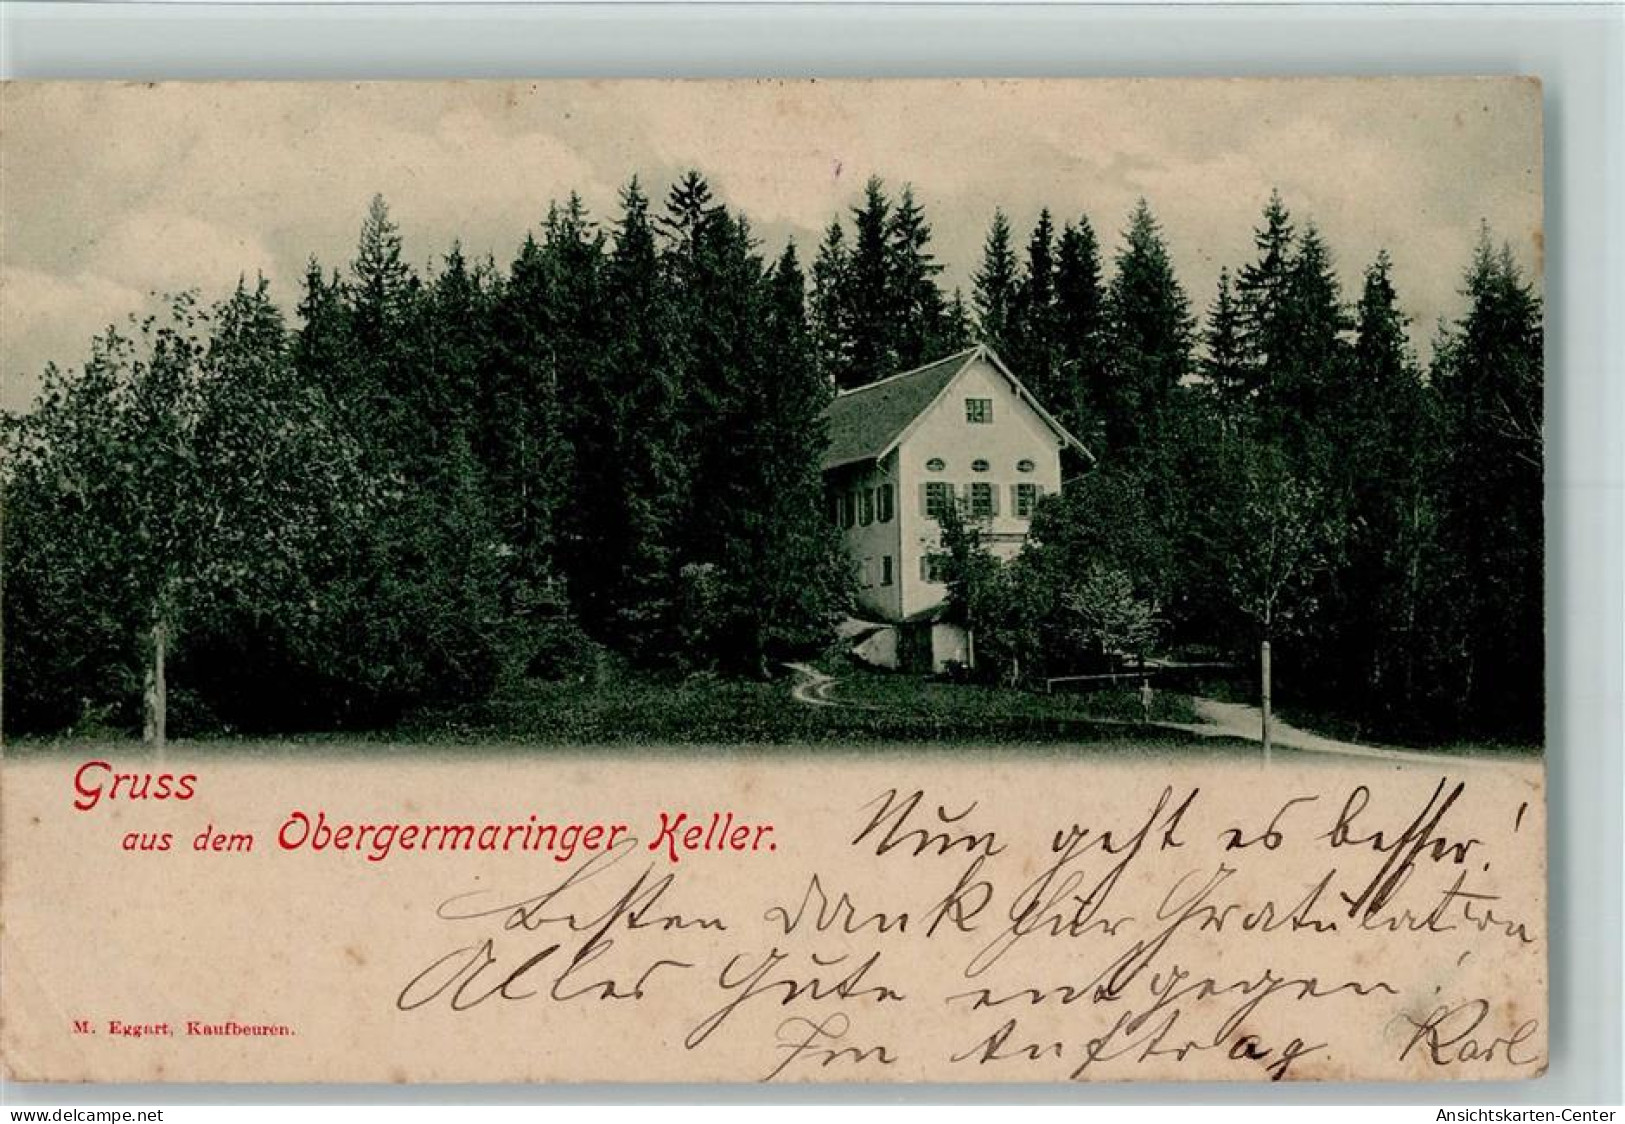 Gruss
aus dem Obergermaringer Keller.
Nun geht es besser!
Besten Dank für Gratulation
Alles Gute entgegen!
Im Auftrag Karl
M. Eggart, Kaufbeuren.
www.delcampe.net
Ansichtskarten-Center